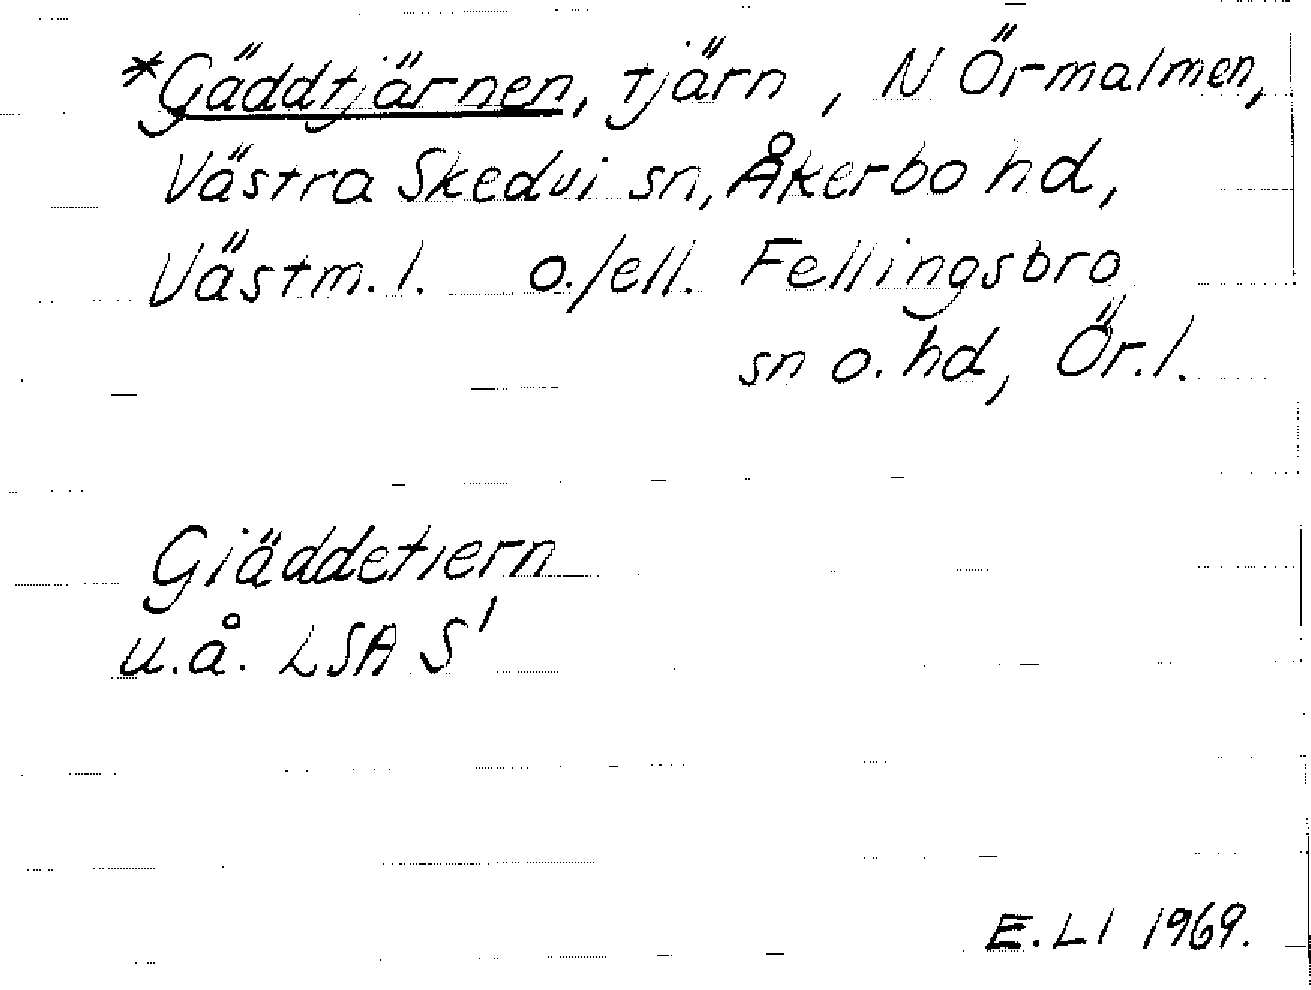 *Gäddtjärnen, tjärn, N Örmalmen,
Västra Skedvi sn, Åkerbo hd,
Västm. l. o./ell. Fellingsbro
sn o. hd, Ör. l.
Giäddetiern
u.å. LSA S'
E. LI 1969.